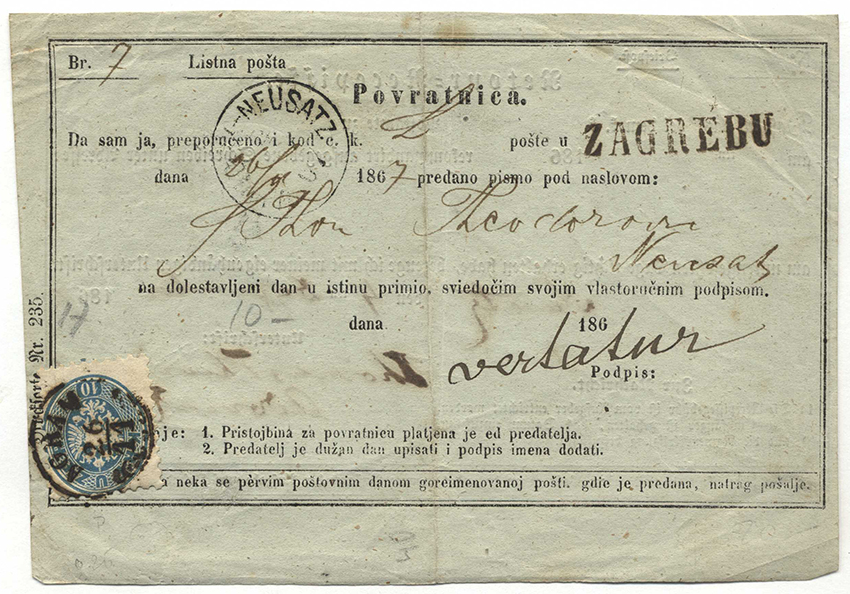 Br. 7 Listna pošta
NEUSATZ
Povratnica.
Da sam ja, preporučeno i kod c. k. pošte u ZAGREBU
dana 26/ 1867 predano pismo pod naslovom:
Theodorovic
Neusatz
na dolestavljeni dan u istinu primio, sviedočim svojim vlastoručnim podpisom.
10-
dana 186
vertatur
Podpis:
Nr. 235.
17
10
AGRAM
26
je: 1. Pristojbina za povratnicu platjena je od predatelja.
2. Predatelj je dužan dan upisati i podpis imena dodati.
a neka se pèrvim poštovnim danom goreimenovanoj pošti. gdie je predana, natrag pošalje.